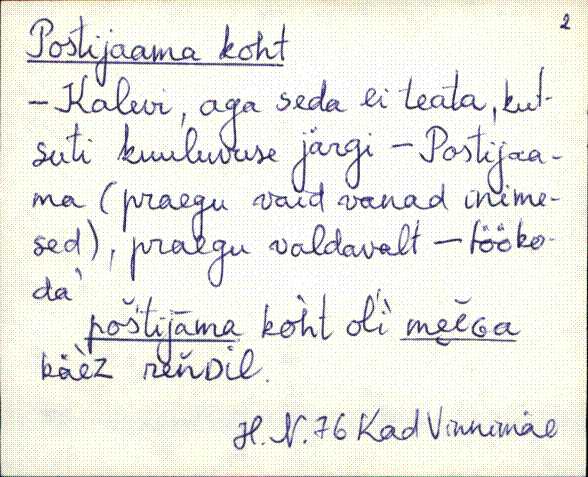 2
Postijaama koht
– Kalevi, aga seda ei teata, kut-
suti kuuluvuse järgi – Postijaa-
ma (praegu vaid vanad inime-
sed), praegu valdavalt – tööko-
da
pošťijāma kòht oĺì
käèz reńDil.
H. N. 76 Kad Vinnimäe